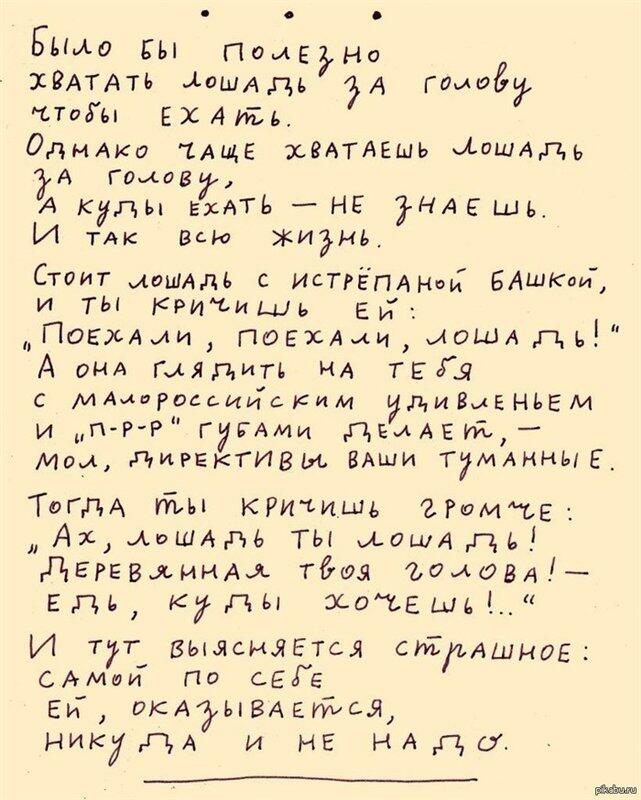 • • •
Было бы полезно
хватать лошадь за голову
чтобы ехать.
Однако чаще хватаешь лошадь
за голову,
а куды ехать — не знаешь.
И так всю жизнь.
Стоит лошадь с истрёпаной башкой,
и ты кричишь ей:
„Поехали, поехали, лошадь!"
А она глядить на тебя
с малороссийским удивленьем
и „п-р-р" губами делает, —
мол, директивы ваши туманные.
Тогда ты кричишь громче:
„Ах, лошадь ты лошадь!
Деревянная твоя голова! —
Едь, куды хочешь!.."
И тут выясняется страшное:
самой по себе
ей, оказывается,
никуда и не надо.
pikabu.ru